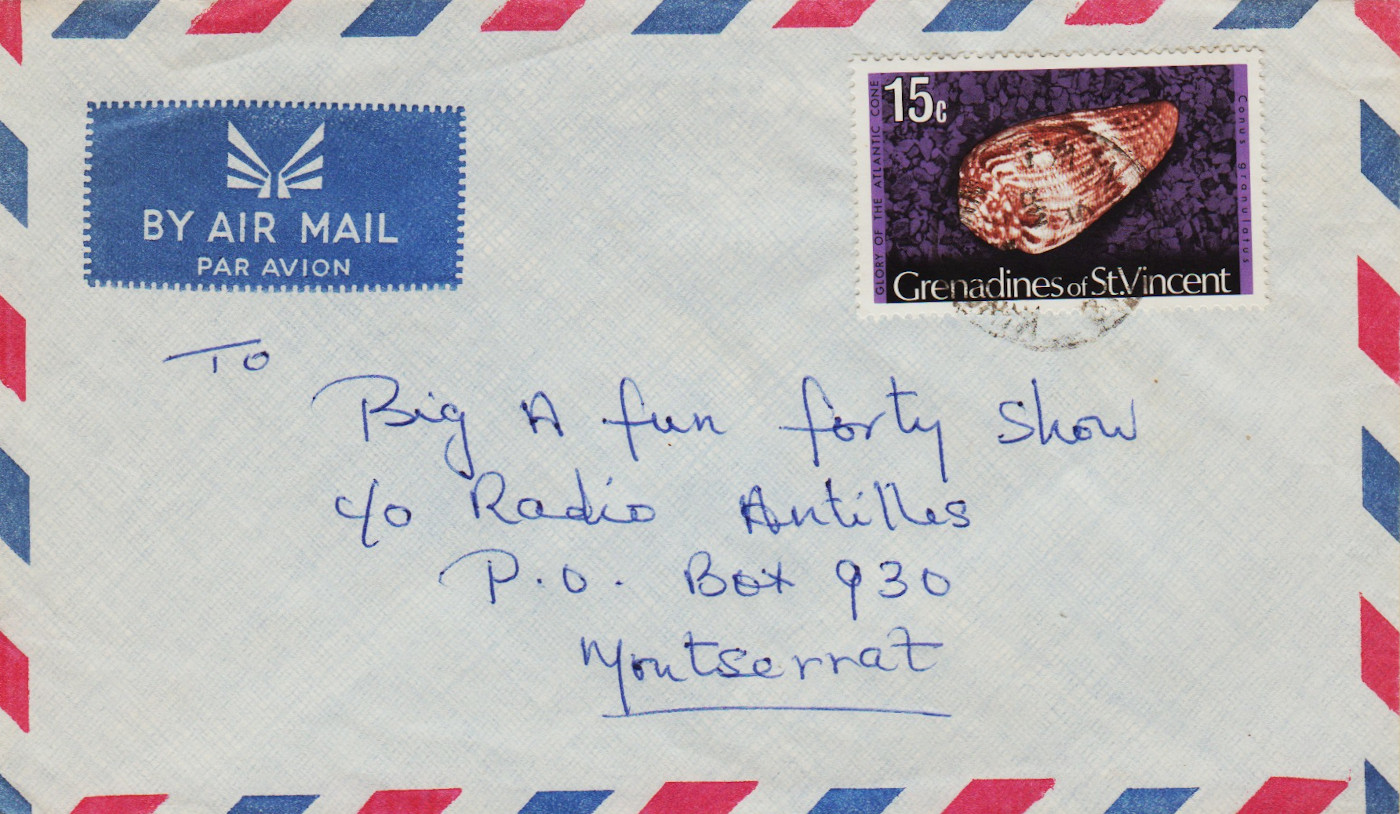 BY AIR MAIL
PAR AVION
15c
GLORY OF THE ATLANTIC CONE
Conus granulatus
Grenadines of St.Vincent
To
Big A fun forty Show
c/o Radio Antilles
P.O. Box 930
Montserrat